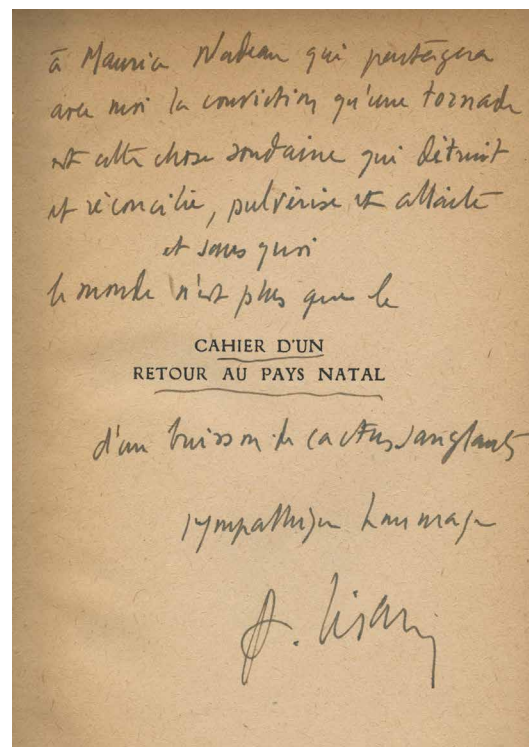 à Maurice Nadeau qui partagera
avec moi la conviction qu'une tornade
est cette chose soudaine qui détruit
et réconcilie, pulvérise et allaite
et sans quoi
le monde n'est plus que le
CAHIER D'UN
RETOUR AU PAYS NATAL
d'un buisson de cactus sanglants
sympathique hommage
A. Césaire